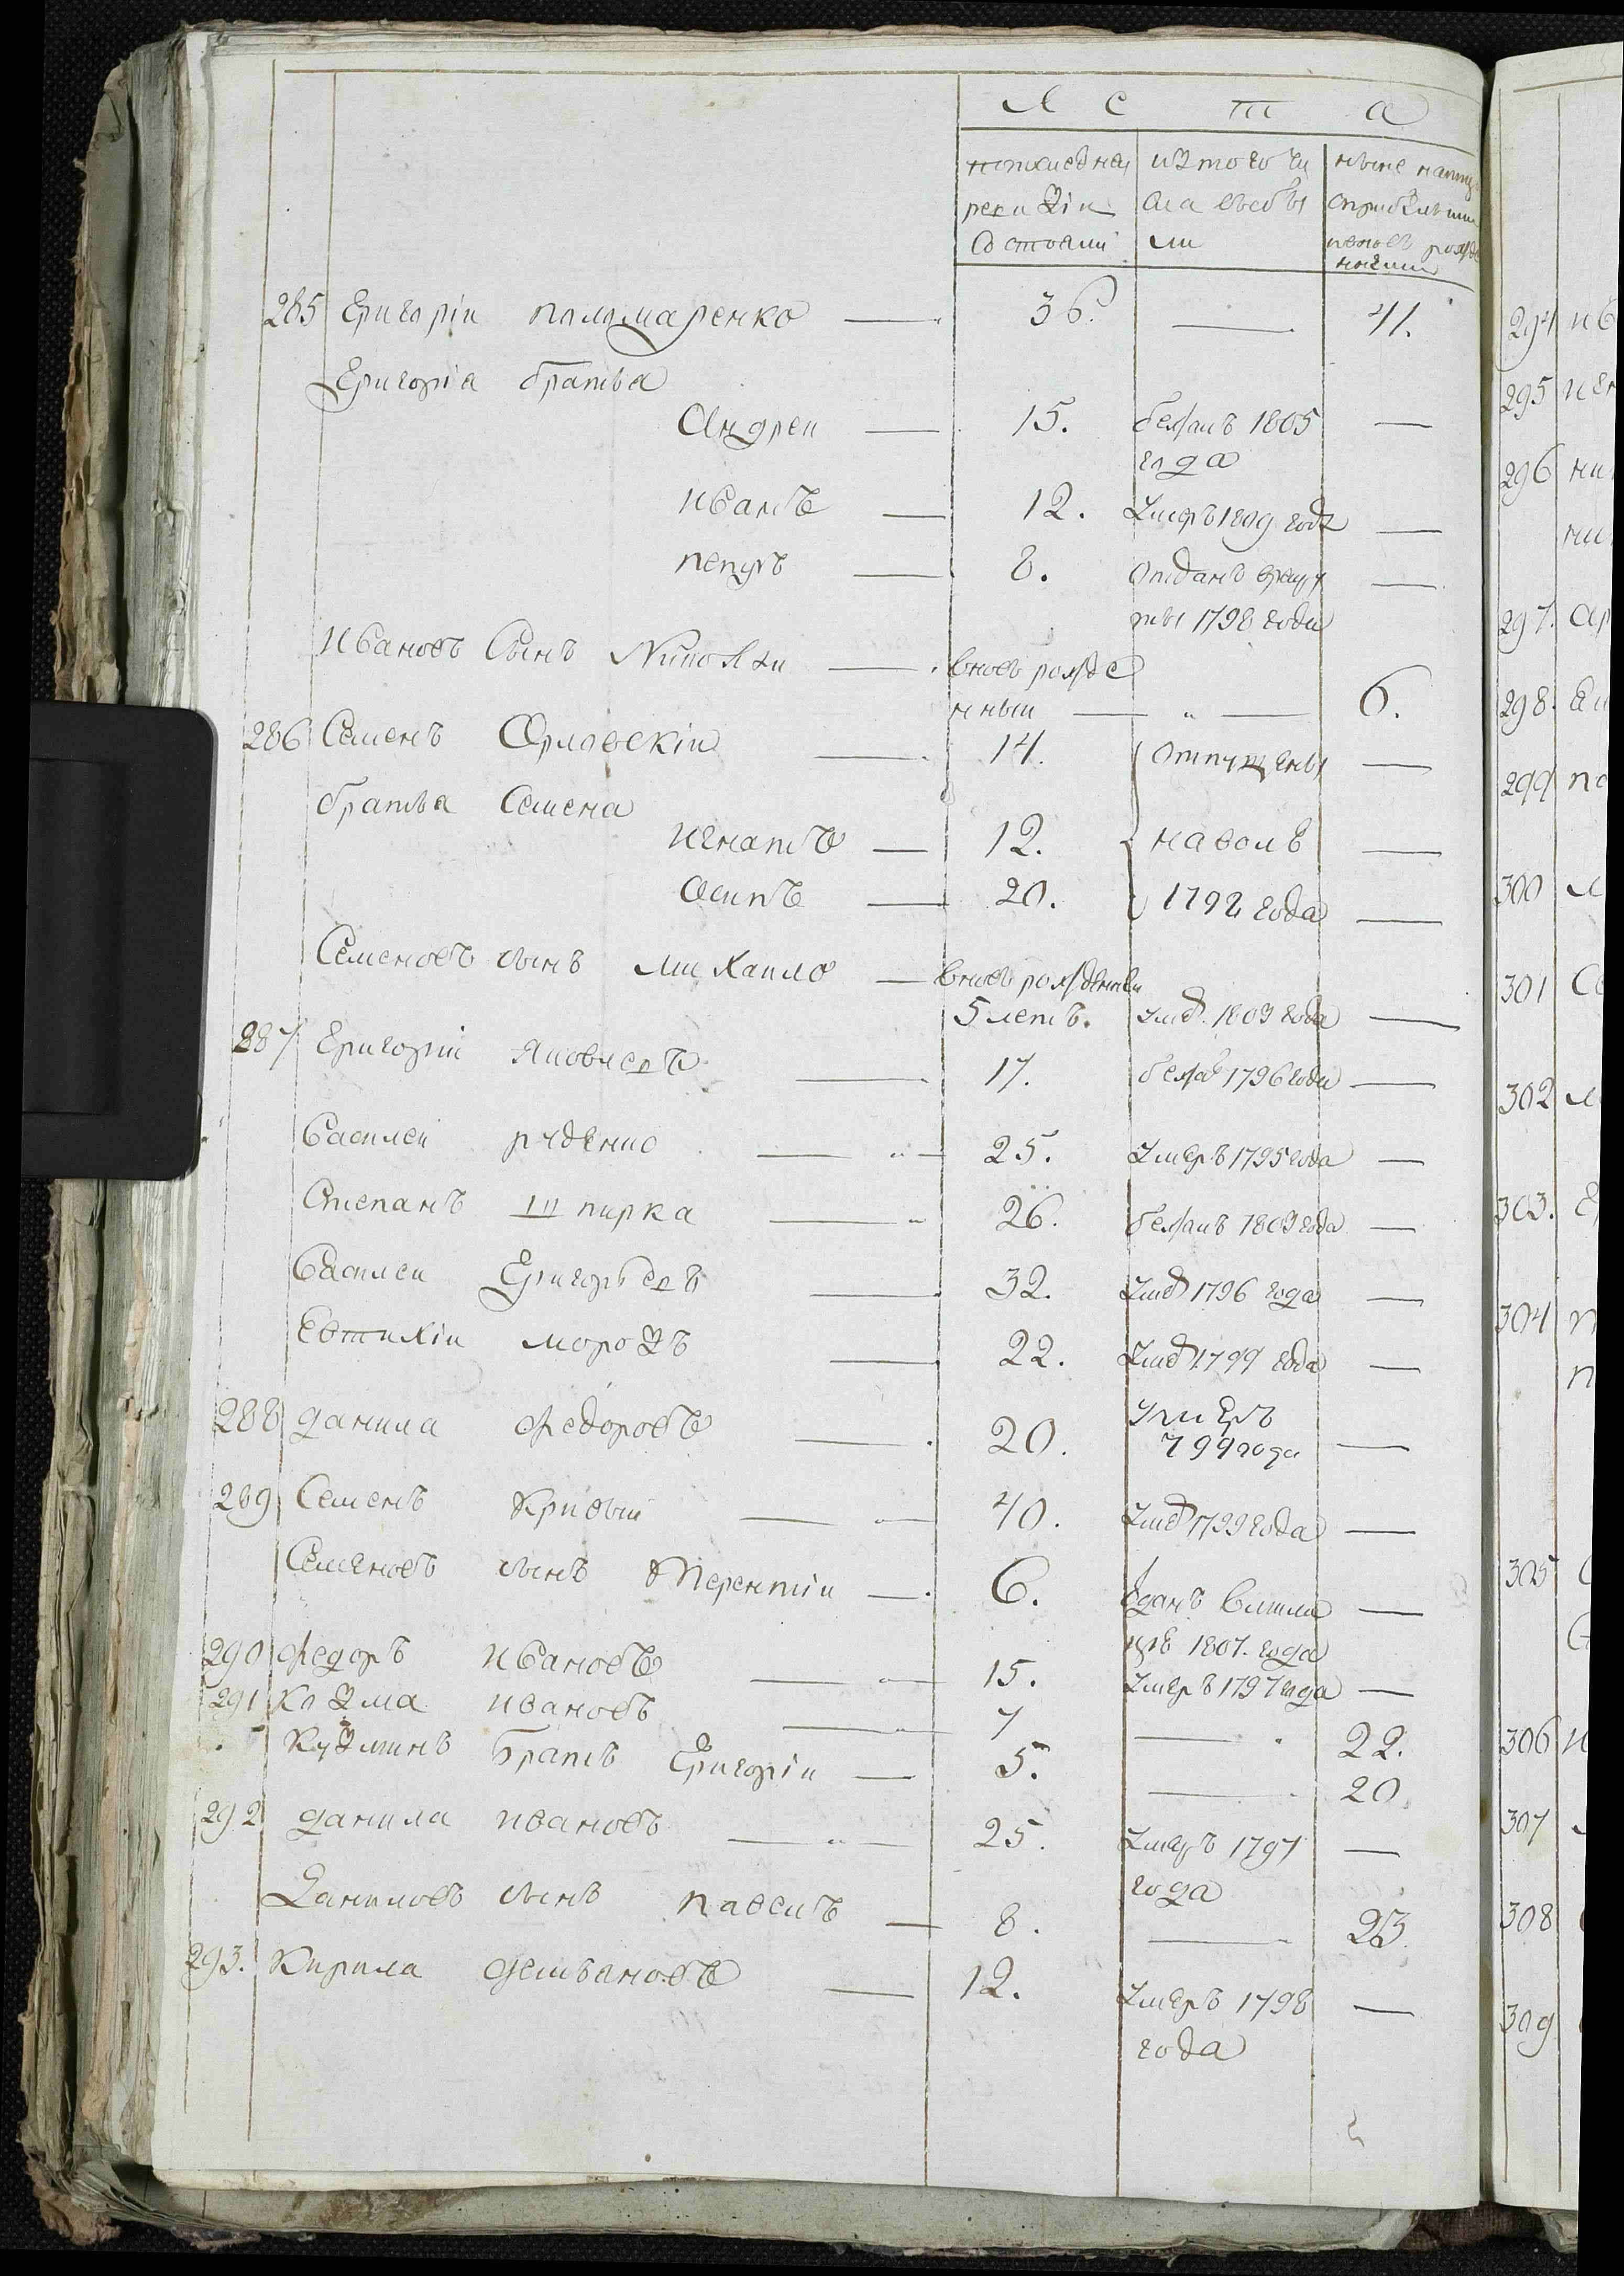 Л е т а
попоследней изтого чи ныне налицо
ревизiи сла выбы сприбылыми
состояли ли ивновь рожде
нными
285 Григорiи паламаренко — 36. — 41.
Григорiя братья
Андреи — 15. бежалъ 1805 —
года
Иванъ — 12. Умеръ 1809 года —
петръ — 8. Отданъ врекру —
ты 1798 года
Ивановъ Сынъ Николаи — вновь рожде
нныи — „ — 6.
286 Семенъ Орловскiи — 14. отпущены —
братья Семена
Игнатъ — 12. наволю —
Осипъ — 20. 1792 года —
Семеновъ сынъ михаило — вновь рожденныи
5 летъ. умеръ 1809 года —
287 Григории Яковлевъ — 17. бежалъ 1796 года —
Василеи руденко — „ — 25. Умеръ 1795 года —
Степанъ шпирка — „ 26. бежалъ 1809 года —
Василеи Григорьевъ — 32. Умеръ 1796 года —
Евтихiи морозъ — 22. Умеръ 1799 года —
288 данила Федоровъ — 20. умеръ
799 года —
289 Семенъ Кривыи — „ — 40. Умеръ 1799 года —
Семеновъ сынъ Терентiи — 6. Отданъ вмили —
цiю 1807. года
290 Федоръ Ивановъ — „ — 15. Умеръ 1797 года —
291 Козма Ивановъ — „ — 7 — 22.
Кузминъ братъ Григорiи — 5. — 20.
292 данила Ивановъ — „ — 25. Умеръ 1797 —
года
Даниловъ сынъ павелъ — 8. — 23.
293. Кирила Демьяновъ — 12. Умеръ 1798 —
года
294
295
296
297.
298.
299
300
301
302
303.
304
305
306
307
308
309